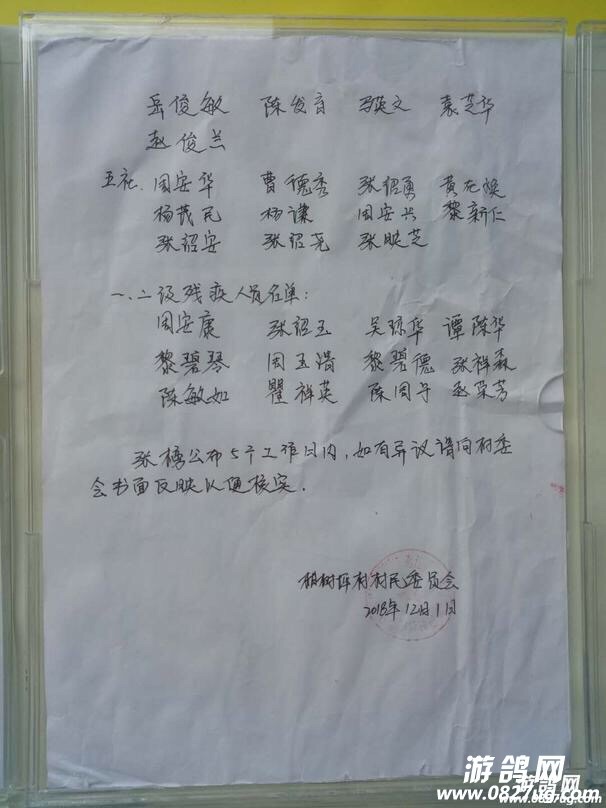 岳俊敏 陈发育 马英文 袁芝华
赵俊兰
五社、周安华 曹德秀 张绍勇 黄在焕
杨茂民 杨谦 周安兴 黎新仁
张绍安 张绍尧 张映芝
一、二级残疾人员名单:
周安康 张绍玉 吴琼华 谭陈华
黎碧琴 周玉浩 黎碧德 张祥森
陈敏如 瞿祥英 陈周宇 赵荣芳
张榜公布5个工作日内,如有异议请向村委
会书面反映以便核实.
树坪村村民委员会
2018年12月1日
游鸽网
www.0827ug.com